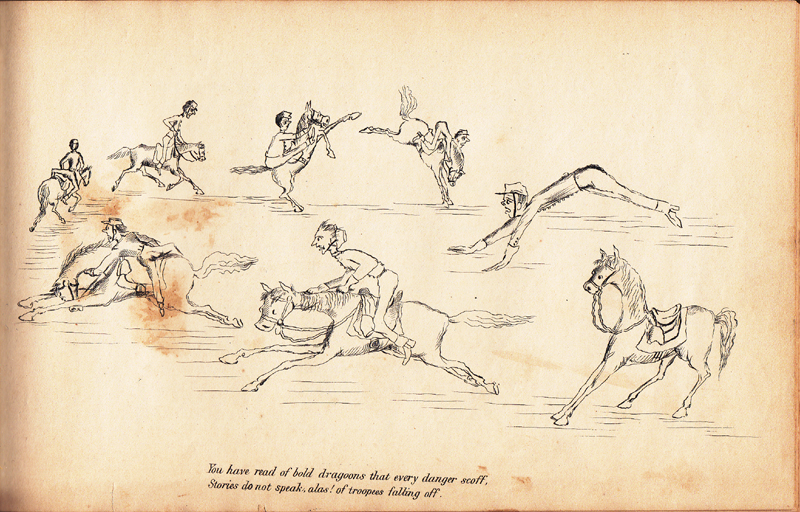 You have read of bold dragoons that every danger scoff,
Stories do not speak, alas! of troopees falling off.